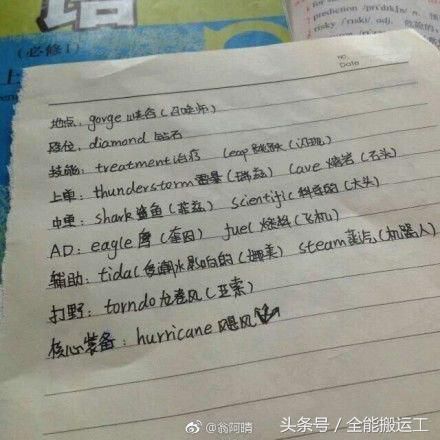 prediction /prɪˈdɪkʃn/ n.
risky /ˈrɪski/ adj.
(必修1)
上
NO.
Date
地点：gorge 峡谷(召唤师)
段位：diamond 钻石
技能：treatment 治疗 leap 跳跃(闪现)
上单：thunderstorm 雷暴(瑞兹) lave 熔岩(石头)
中单：shark 鲨鱼(菲兹) scientific 科学的(大头)
AD：eagle 鹰(奎因) fuel 燃料(飞机)
辅助：tidal 受潮水影响的(娜美) steam 蒸汽(机器人)
打野：torndo 龙卷风(亚索)
核心装备：hurricane 飓风
@翁阿晴
头条号 / 全能搬运工